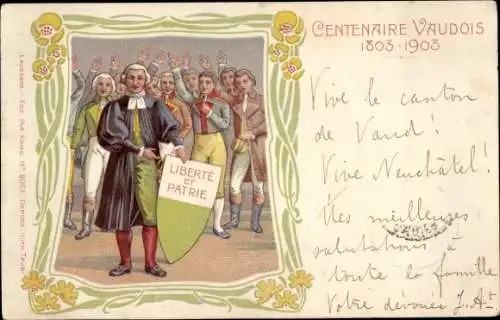 CENTENAIRE VAUDOIS
1803-1903
LIBERTÉ
ET
PATRIE
Vive le canton
de Vaud!
Vive Neuchâtel!
Mes meilleures
salutations à
toute la famille
Votre dévouée J. A